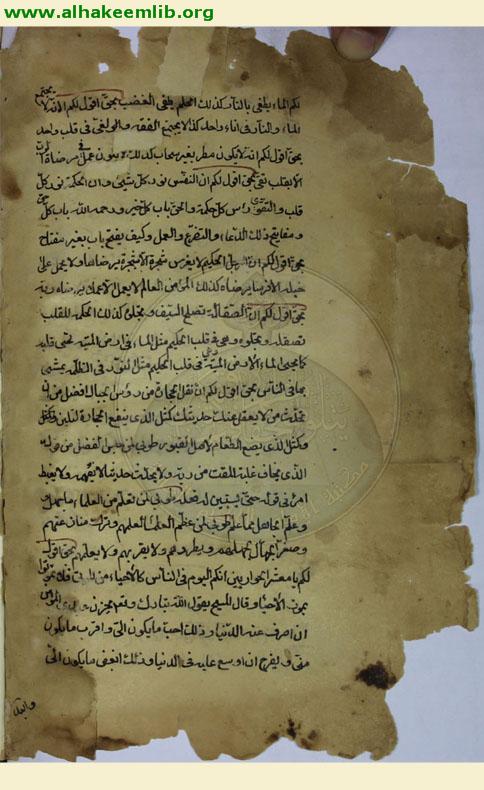 www.alhakeemlib.org
لكم الماء يطفي بالنار كذلك الحلم يطفى الغضب بحق اقول لكم انه لا يجتمع
الماء والنار فى اناء واحد كذلك لا يجتمع الفقه والعمى فى قلب واحد
بحق اقول لكم انه لا يكون مطر بغير سحاب كذلك لا يكون عمل فى مرضاة الرب
الا بقلب نقى بحق اقول لكم ان النفس نور كل شىء وان الحكمة نور كل
قلب والتقوى راس كل حكمة والحق باب كل خير ورحمة الله باب كل حق
ومفاتيح ذلك الدعاء والتضرع والعمل وكيف يفتح باب بغير مفتاح
بحق اقول لكم ان الرجل الحكيم لا يغرس شجرة الا شجرة يرضاها ولا يحمل على
خيله الا فرسا يرضاه كذلك المؤمن العالم لا يعمل الا عملا يرضاه ربه
بحق اقول لكم ان الصقالة تصلح السيف وتجلوه كذلك الحكمة للقلب
تصقله وتجلوه وهى فى قلب الحكيم مثل الماء فى الارض الميتة تحيى قلبه
كما يحيى الماء الارض الميتة وهى فى قلب الحكيم مثل النور فى الظلمة يمشى
بها فى الناس بحق اقول لكم ان نقل الحجارة من رؤس الجبال افضل من ان
تحدث من لا يعقل عنك حديثك كمثل الذى ينقع الحجارة لتلين وكمثل
وكمثل الذى يضع الطعام لاهل القبور طوبى لمن حبس الفضل من قوله
الذى يخاف عليه المقت من ربه ولا يحدث حديثا لا يفهم ولا يغبط
امرئ فى قوله حتى يستبين له فعله طوبى لمن تعلم من العلماء ما جهل و
وعلم الجاهل مما علم طوبى لمن عظم العلماء لعلمهم وترك منازعتهم
وصغر الجهال لجهلهم ولا يطردهم ولا يقربهم ولا يعلمهم بحق اقول
لكم يا معشر الحواريين انكم اليوم فى الناس كالاحياء من الموتى فلا تموتوا
بموت الاحياء وقال المسيح يقول الله تبارك وتعالى يحزن عبدى المؤمن
ان اصرف عنه الدنيا وذلك احب ما يكون الى واقرب ما يكون
منى ويفرح ان اوسع عليه فى الدنيا وذلك ابغض ما يكون الى
وابعد